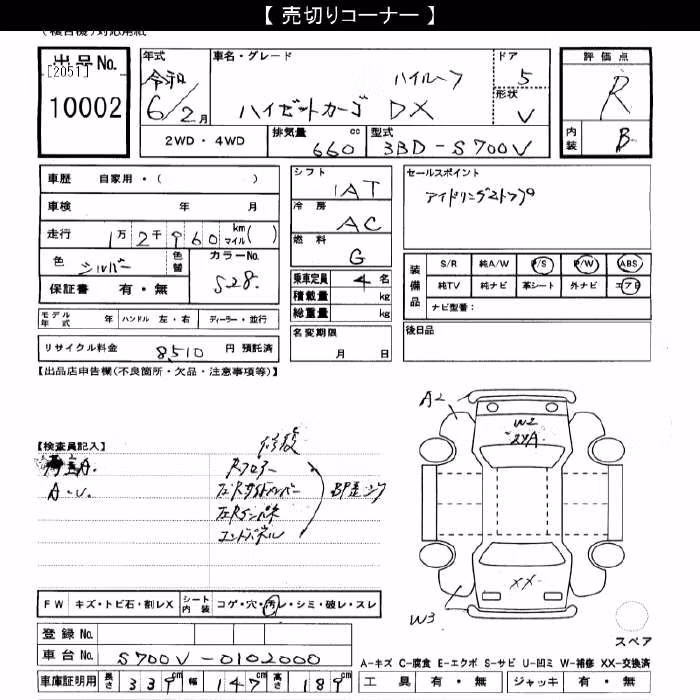 【 売切りコーナー 】
(複合機)対応用紙
出品No.
[2051]
10002
年式
令和
6/2月
車名・グレード
ハイルーフ
ハイゼットカーゴ DX
ドア
5
形状
V
評価点
R
内装
B
2WD・4WD
排気量
660 cc
型式
3BD-S700V
車歴 自家用・( )
車検 年 月
走行 1万2千960 km マイル( )
色 シルバー 色替
カラーNo.
S28
保証書 有・無
モデル年式 年 ハンドル 左・右 ディーラー・並行
リサイクル料金 8,510 円 預託済
シフト
IAT
冷房
AC
燃料
G
乗車定員 4 名
積載量 kg
総重量 kg
名変期限
月 日
セールスポイント
アイドリングストップ
装備品
S/R 純A/W P/S P/W ABS
純TV 純ナビ 革シート 外ナビ エアB
ナビ型番：
後日品
【出品店申告欄(不良箇所・欠品・注意事項等)】
【検査員記入】
修複
A・U.
Rフロアー
左Rサイドメンバー
左Rインパネ
エンドパネル
A2
W2
XX
W3
スペア
FW キズ・トビ石・割レX シート内装 コゲ・穴・汚レ・シミ・破レ・スレ
登録No.
車台No. S700V-0102000
車庫証明用 長さ 339cm 幅 147cm 高さ 189cm
A-キズ C-腐食 E-エクボ S-サビ U-凹ミ W-補修 XX-交換済
工具 有・無 ジャッキ 有・無